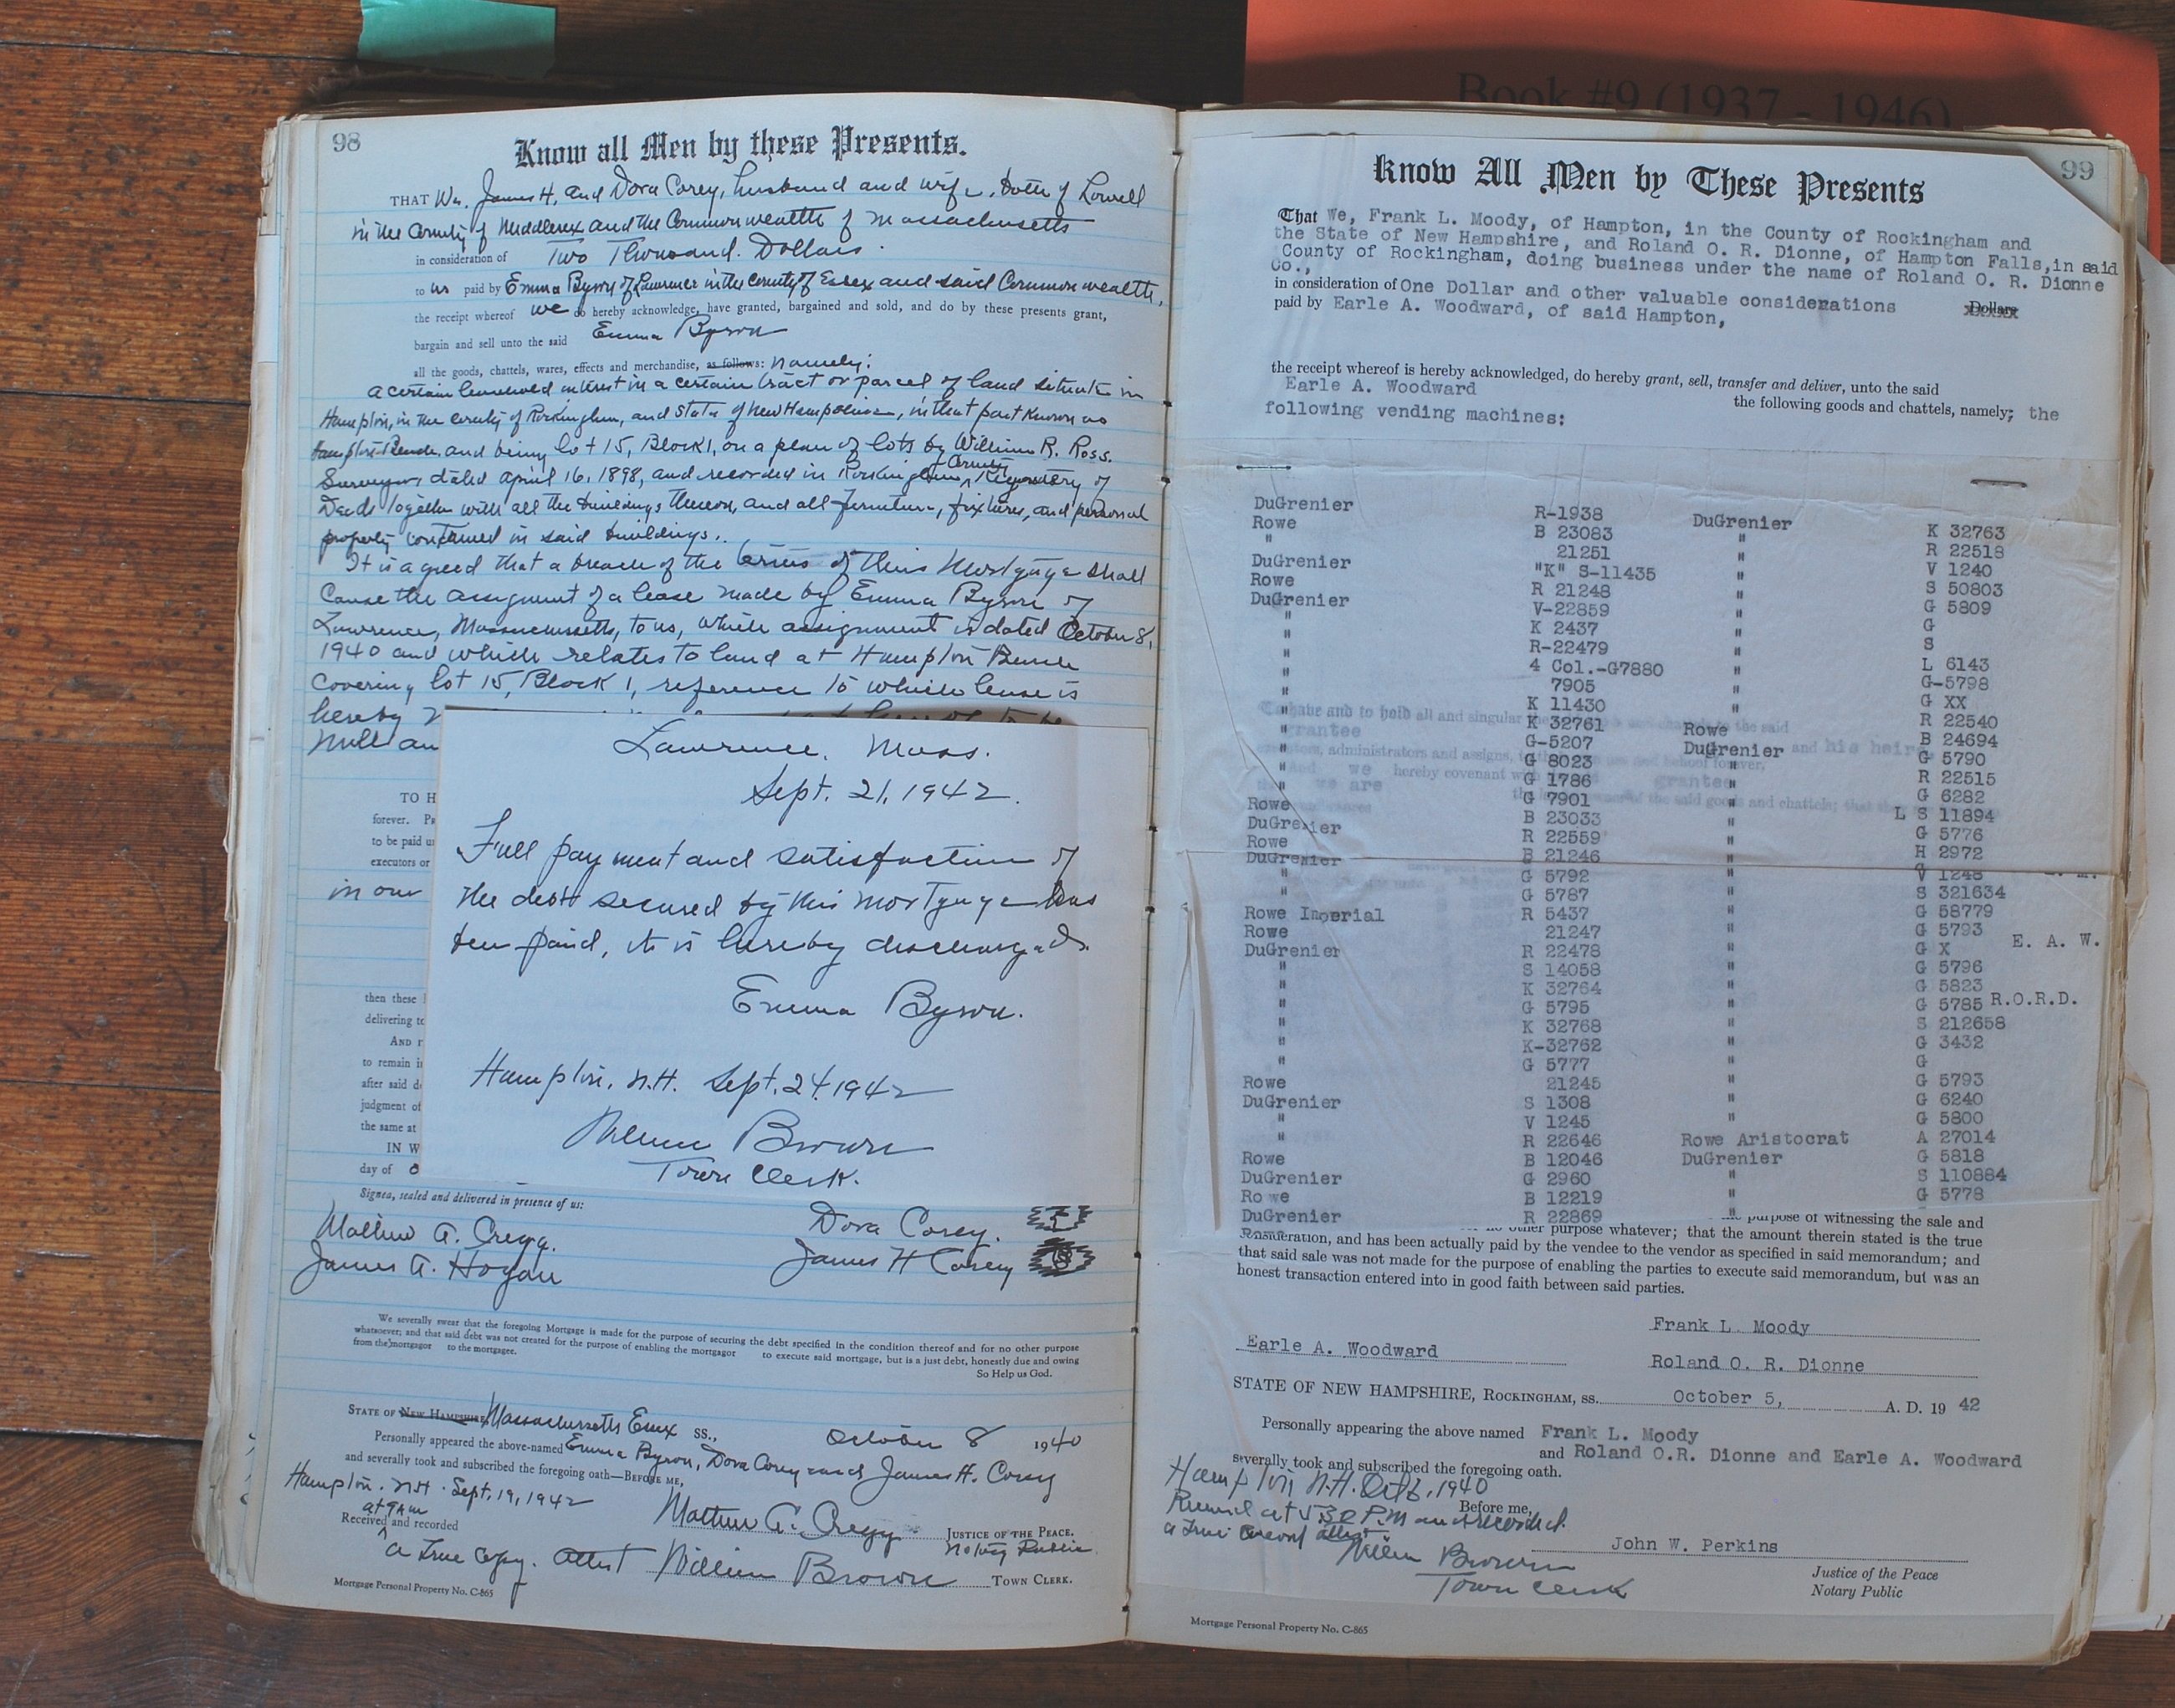 Book #9 (1937 - 1946)
98
Know all Men by these Presents.
THAT We, James H. and Dora Corey, husband and wife, both of Lowell
in the County of Middlesex and the Commonwealth of Massachusetts
in consideration of Two Thousand Dollars
to us paid by Emma Byron of Lawrence in the county of Essex and said Commonwealth,
the receipt whereof we do hereby acknowledge, have granted, bargained and sold, and do by these presents grant,
bargain and sell unto the said Emma Byron
all the goods, chattels, wares, effects and merchandise, as follows: namely:
A certain leasehold interest in a certain tract or parcel of land situate in
Hampton, in the county of Rockingham, and State of New Hampshire, in that part known as
Hampton Beach and being lot 15, Block 1, on a plan of lots by William R. Ross.
Surveyor dated April 16, 1898, and recorded in Rockingham County Registry of
Deeds together with all the buildings thereon, and all furniture, fixtures, and personal
property contained in said buildings.
It is agreed that a breach of the terms of this Mortgage shall
cause the assignment of a lease made by Emma Byron of
Lawrence, Massachusetts, to us, which assignment is dated October 8,
1940 and which relates to land at Hampton Beach
covering lot 15, Block 1, reference to which lease is
hereby
null an
TO H
forever.
to be paid u
executors or
in our
then these
delivering to
AND
to remain i
after said d
judgment of
the same at
IN W
day of O
Lawrence, Mass.
Sept. 21, 1942.
Full payment and satisfaction of
the debt secured by this mortgage has
been paid, it is hereby discharged.
Emma Byron.
Hampton, N.H. Sept. 24, 1942
William Brown
Town Clerk.
Signed, sealed and delivered in presence of us:
Mathew A. Cregg.
James A. Hogan
Dora Corey.
James H Corey
We severally swear that the foregoing Mortgage is made for the purpose of securing the debt specified in the condition thereof and for no other purpose
whatsoever; and that said debt was not created for the purpose of enabling the mortgagor to execute said mortgage, but is a just debt, honestly due and owing
from the mortgagor to the mortgagee.
So Help us God.
STATE OF NEW HAMPSHIRE, Massachusetts Essex SS., October 8 1940
Personally appeared the above-named Emma Byron, Dora Corey and James H. Corey
and severally took and subscribed the foregoing oath—BEFORE ME,
Hampton. N.H. Sept. 19, 1942
at 9 AM
Mathew A. Cregg JUSTICE OF THE PEACE.
Notary Public
Received and recorded
A True Copy. Attest William Brown TOWN CLERK.
Mortgage Personal Property No. C-865
99
Know All Men by These Presents
That We, Frank L. Moody, of Hampton, in the County of Rockingham and
the State of New Hampshire, and Roland O. R. Dionne, of Hampton Falls,in said
County of Rockingham, doing business under the name of Roland O. R. Dionne
Co.,
in consideration of One Dollar and other valuable considerations Dollars
paid by Earle A. Woodward, of said Hampton,
the receipt whereof is hereby acknowledged, do hereby grant, sell, transfer and deliver, unto the said
Earle A. Woodward
the following goods and chattels, namely; the
following vending machines:
DuGrenier R-1938
Rowe B 23083
" 21251
DuGrenier "K" S-11435
Rowe R 21248
DuGrenier V-22859
" K 2437
" R-22479
" 4 Col.-G7880
" 7905
" K 11430
" K 32761
" G-5207
" G 8023
" G 1786
" G 7901
Rowe B 23033
DuGrenier R 22559
Rowe B 21246
DuGrenier G 5792
" G 5787
Rowe Imperial R 5437
Rowe 21247
DuGrenier R 22478
" S 14058
" K 32764
" G 5795
" K 32768
" K-32762
" G 5777
Rowe 21245
DuGrenier S 1308
" V 1245
" R 22646
Rowe B 12046
DuGrenier G 2960
Rowe B 12219
DuGrenier R 22869
DuGrenier K 32763
" R 22518
" V 1240
" S 50803
" G 5809
" G
" S
" L 6143
" G-5798
" G XX
" R 22540
Rowe B 24694
DuGrenier G 5790
" R 22515
" G 6282
" L S 11894
" G 5776
" H 2972
" V 1245
" S 321634
" G 58779
" G 5793
" G X
" G 5796
" G 5823
" G 5785
" S 212658
" G 3432
" G
" G 5793
" G 6240
" G 5800
Rowe Aristocrat A 27014
DuGrenier G 5818
" S 110884
" G 5778
E. A. W.
R.O.R.D.
purpose of witnessing the sale and
no other purpose whatever; that the amount therein stated is the true
consideration, and has been actually paid by the vendee to the vendor as specified in said memorandum; and
that said sale was not made for the purpose of enabling the parties to execute said memorandum, but was an
honest transaction entered into in good faith between said parties.
Frank L. Moody
Earle A. Woodward
Roland O. R. Dionne
STATE OF NEW HAMPSHIRE, ROCKINGHAM, SS. October 5, A. D. 19 42
Personally appearing the above named Frank L. Moody
and Roland O.R. Dionne and Earle A. Woodward
severally took and subscribed the foregoing oath.
Hampton N.H. Oct 6, 1940
Before me,
Received at 5:30 P.M and recorded.
a True Record attest
William Brown
Town Clerk
John W. Perkins
Justice of the Peace
Notary Public
Mortgage Personal Property No. C-865